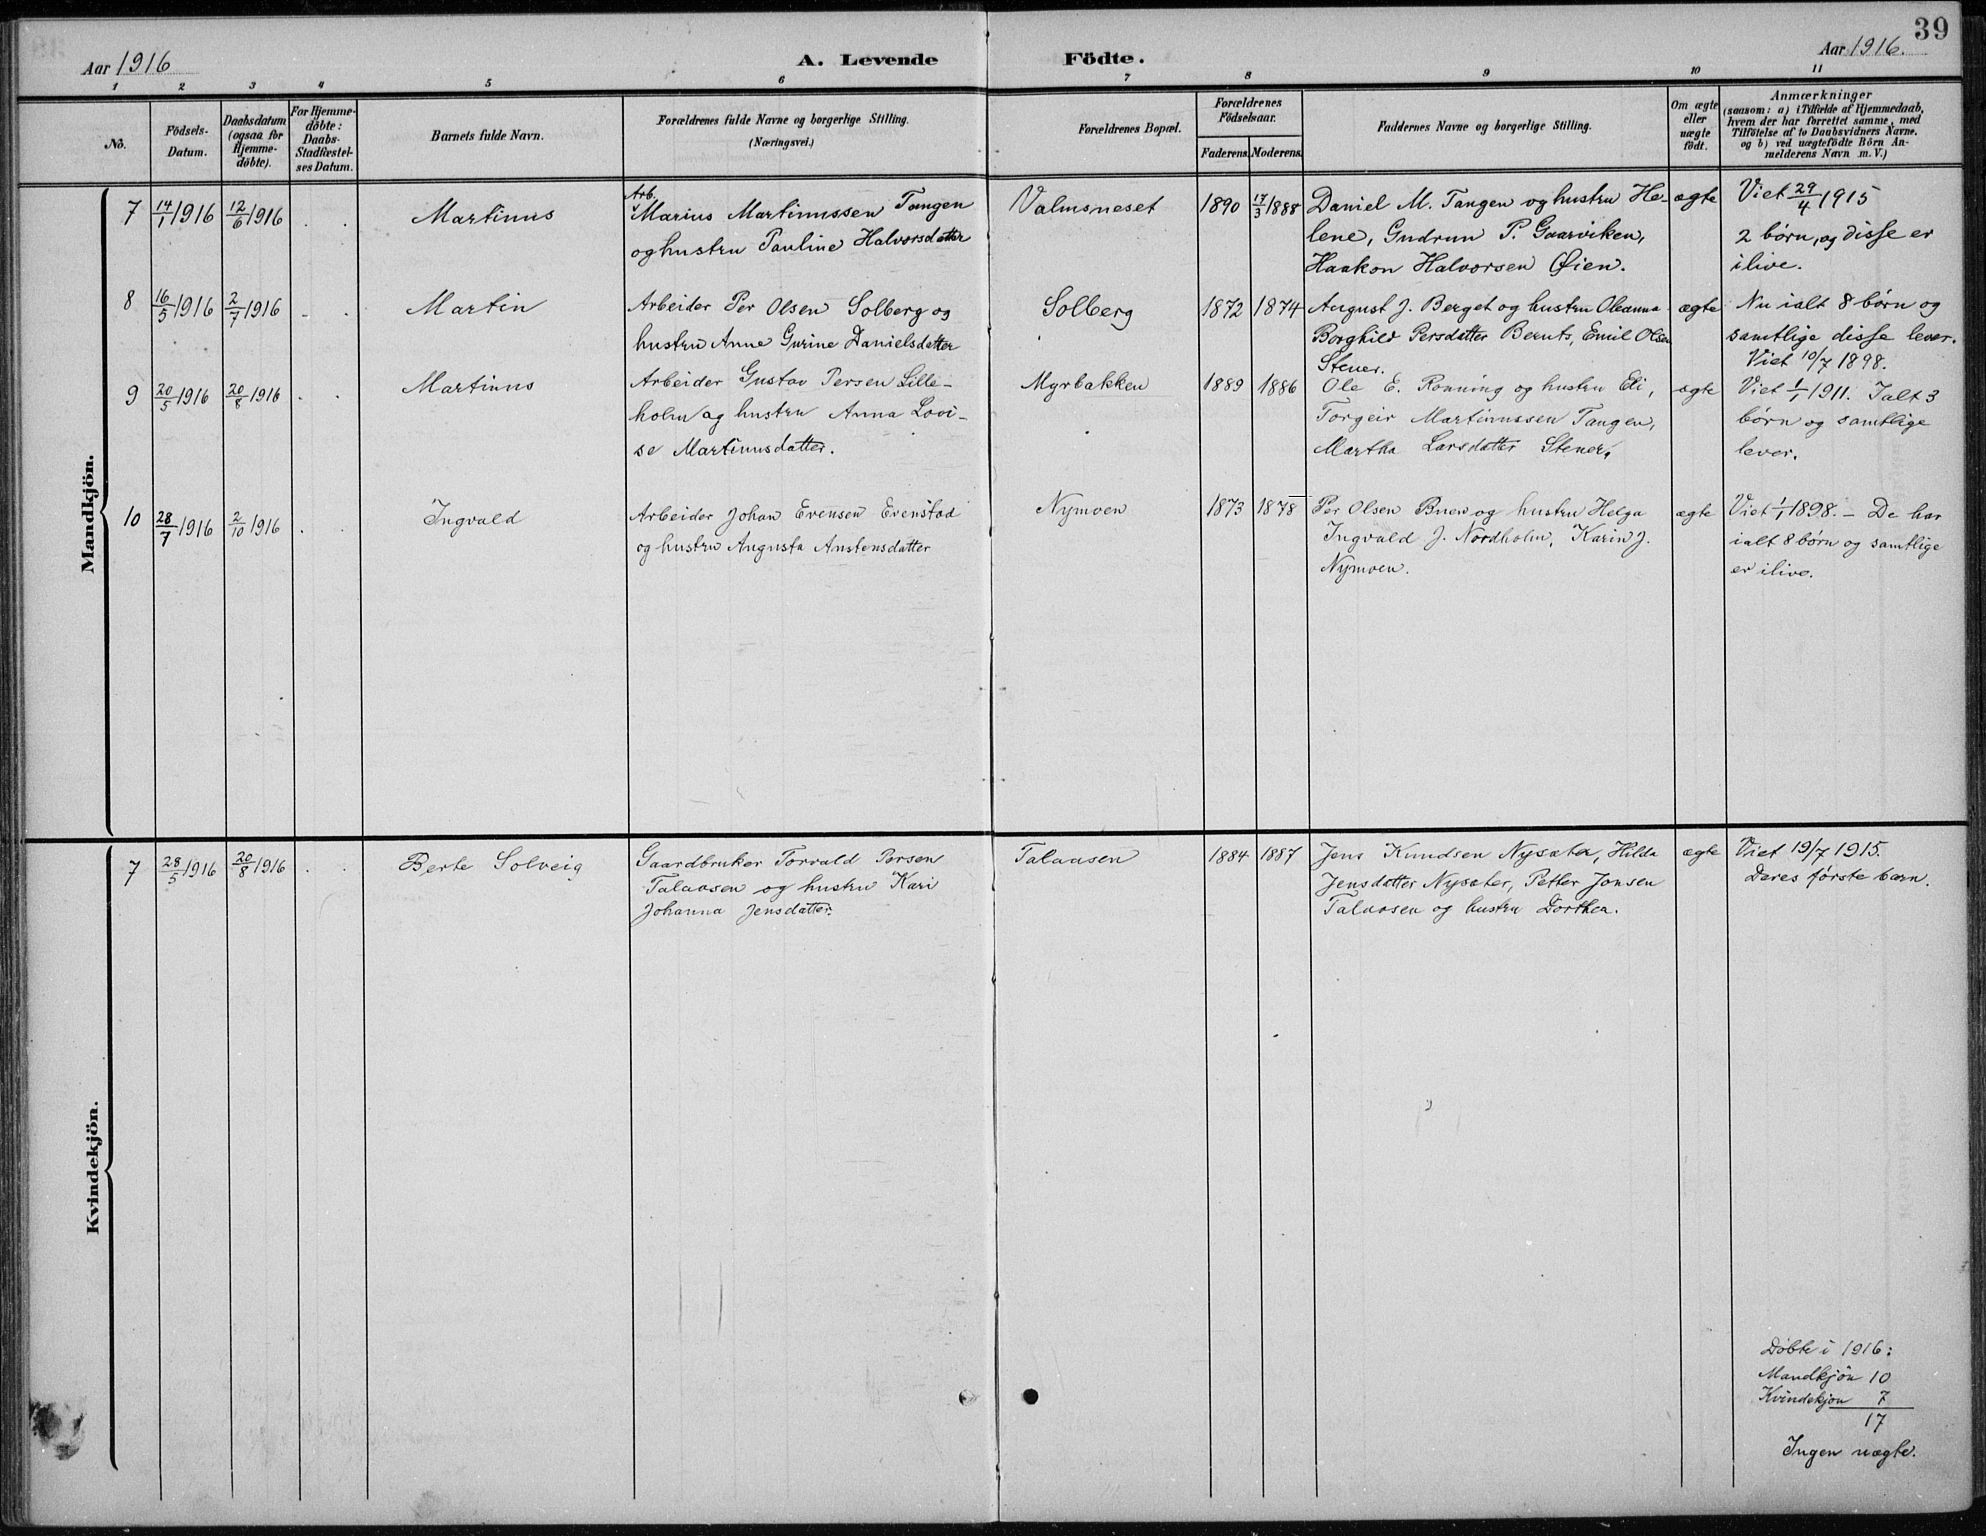 39
Aar 1916
A. Levende Födte.
Aar 1916.
1 2 3 4 5 6 7 8 9 10 11
No.
Födsels-
Datum.
Daabsdatum
(ogsaa for
Hjemme-
döbte).
For Hjemme-
döbte:
Daabs-
Stadfæstel-
ses Datum.
Barnets fulde Navn.
Forældrenes fulde Navne og borgerlige Stilling.
(Næringsvei.)
Forældrenes Bopæl.
Forældrenes
Födselsaar.
Faderens. Moderens.
Faddernes Navne og borgerlige Stilling.
Om ægte
eller
uægte
födt.
Anmærkninger
(saasom: a) i Tilfælde af Hjemmedaab,
hvem der har forrettet samme, med
Tilföielse af to Daabsvidners Navne.
og b) ved uægtefödte Börn An-
melderens Navn m. V.)
Mandkjön.
7
14/1 1916
12/6 1916
Martinus
Arb.
Marius Martinussen Tangen
og hustru Pauline Halvorsdatter
Valmsneset
1890
17/3 1888
Daniel M. Tangen og hustru He-
lene, Gudrun P. Gaarviken,
Haakon Halvorsen Øien.
ægte
Viet 29/4 1915
2 børn, og disse er
ilive.
8
16/5 1916
2/7 1916
Martin
Arbeider Per Olsen Solberg og
hustru Anne Gurine Danielsdatter
Solberg
1872
1874
August J. Berget og hustru Oleanna
Borghild Persdatter Beruts, Emil Olsen
Stener.
ægte
Nu ialt 8 børn og
samtlige disse lever.
Viet 10/7 1898.
9
20/5 1916
20/8 1916
Martinus
Arbeider Gustav Persen Lille-
holm og hustru Anna Lovi-
se Martinusdatter.
Myrbakken
1889
1886
Ole E. Rønning og hustru Eli,
Torgeir Martinussen Tangen,
Martha Larsdatter Stener.
ægte
Viet 1/1 1911. Ialt 3
børn og samtlige
lever.
10
28/7 1916
2/10 1916
Ingvald
Arbeider Johan Evensen Evenstad
og hustru Augusta Anstensdatter
Nymoen
1873
1878
Per Olsen Bruen og hustru Helga
Ingvald J. Nordholm, Karin J.
Nymoen.
ægte
Viet 1/1 1898. – De har
ialt 8 børn og samtlige
er ilive.
Kvindekjön.
7
28/5 1916
20/8 1916
Berte Solveig
Gaardbruker Torvald Persen
Talaasen og hustru Kari
Johanna Jensdatter.
Talaasen
1884
1887
Jens Knudsen Nysæter, Hilda
Jensdatter Nysæter, Petter Jonsen
Talaasen og hustru Dorthea.
ægte
Viet 19/7 1915.
Deres første barn.
Døbte i 1916:
Mandkjön 10
Kvindekjøn 7
17
Ingen uægte.